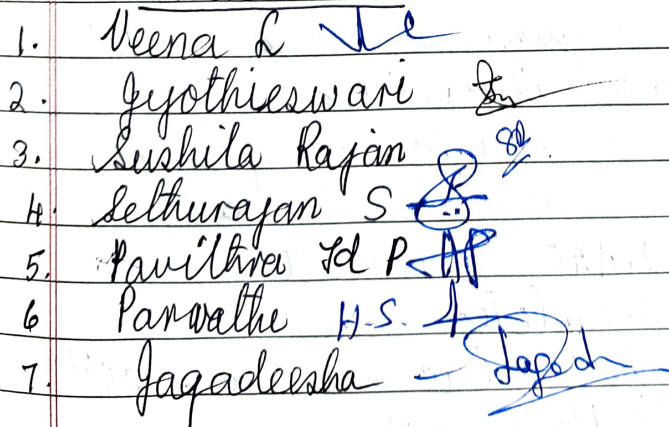 1. Veena L
2. Jyothieswari
3. Sushila Rajan
4. Sethurajan S
5. Pavithra P
6 Parwathe H.S.
7. Jagadeesha - Jagad